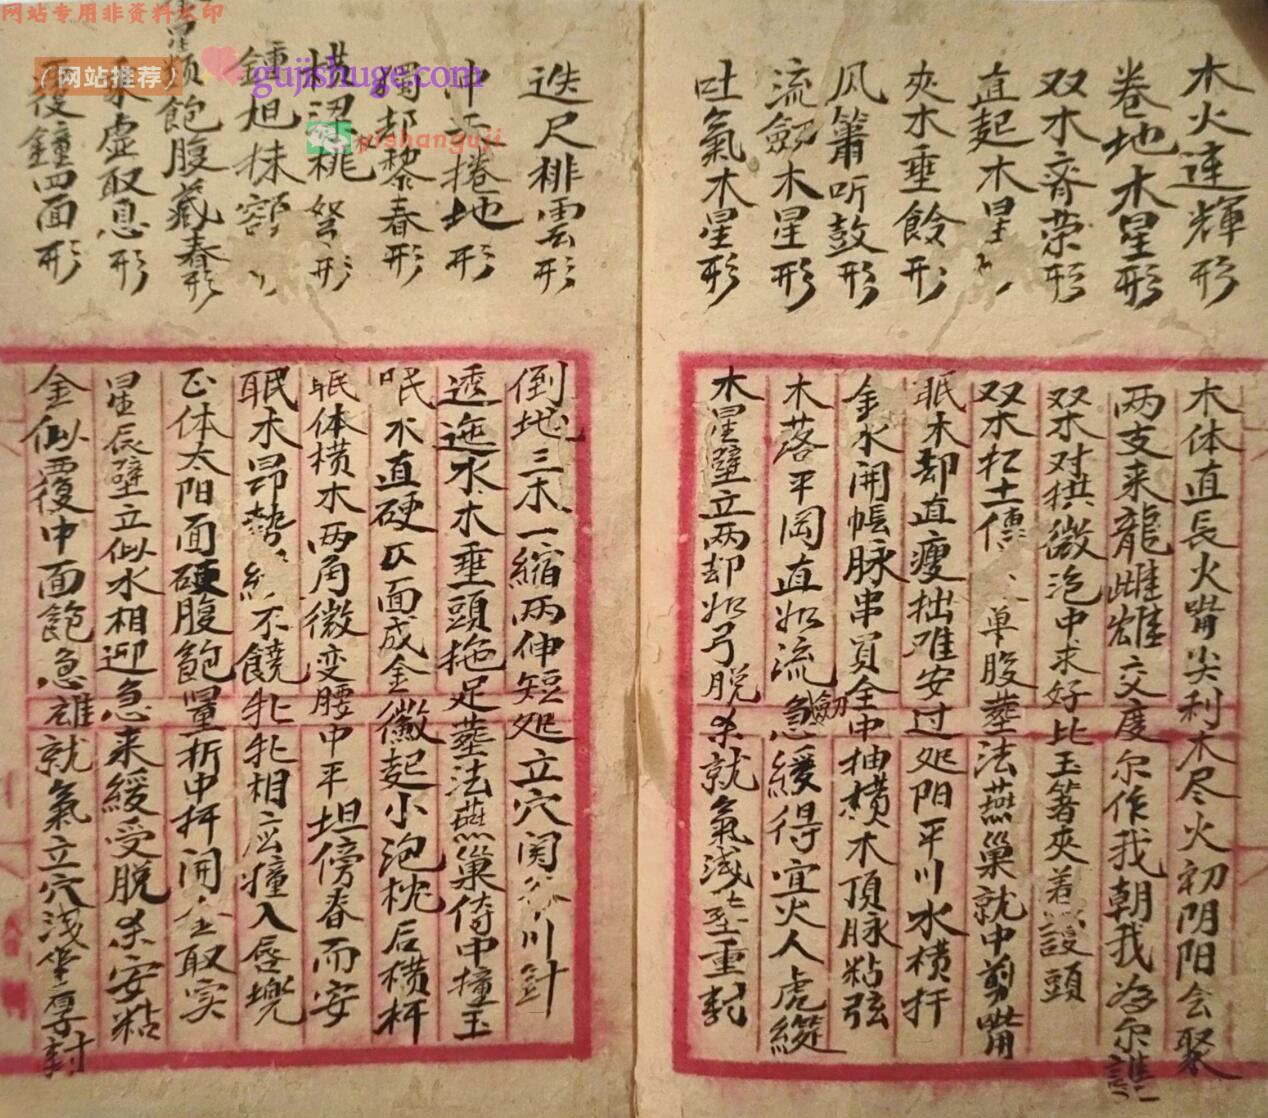 网站专用非资料水印
网站推荐
gujishuge.com
yishanguji
木火连輝形
卷地木星形
双木齊荣形
直起木星
夾木垂餘形
风箫听鼓形
流劔木星形
吐氣木星形
木体直長火嘴尖利木尽火初阴阳会聚
两支来龍雌雄交度尔作我朝我为尔
双木对拱微泡中求好比玉箸夾着護頭
双木扛土傳单腹塟法燕巢就中剪嘴
眠木却直瘦拙难安过处阳平川水横扦
金水開帳脉串買全中抽横木頂脉粘弦
木落平岡直如流劔急緩得宜火人虎緩
木星壁立两却如弓脱杀就氣浅重封
迭尺排雲形
冲天捲地形
獨却黎春形
横梁桃形
鍾旦抹額
頭飽腹藏春形
虚取息形
覆鐘四面形
倒地三木一縮两伸短处立穴関川針
透迤水木垂頭拖足塟法燕巢倚中撞玉
眠木直硬仄面成金微起小泡枕后横扦
眠体横木两角微变腰中平坦傍春而安
眠木昂勢不饒牝牝相应撞入唇堍
正体太阳面硬腹飽量折中扦開金取实
星辰壁立似水相迎急来緩受脱杀安粘
金似覆中面飽急雄就氣立穴浅坐厚封